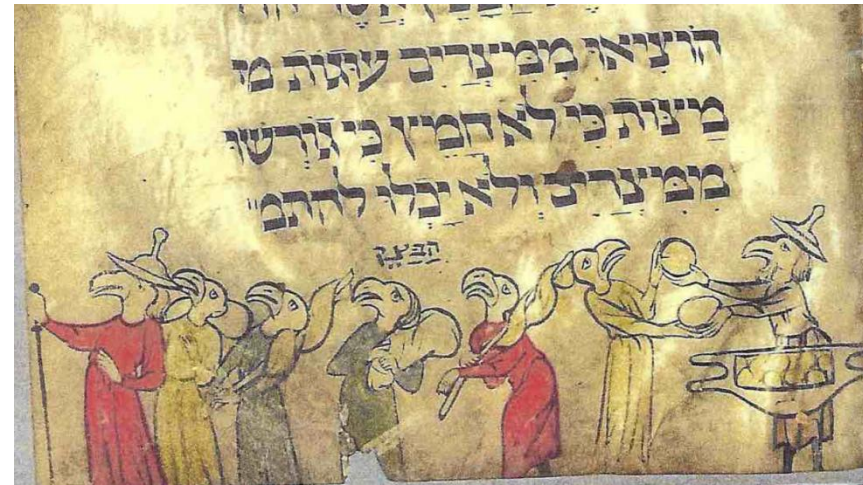 הוֹצִיאוּ מִמִצְרַיִם עוּגוֹת מ
מַצּוֹת כִּי לֹא חָמֵץ כִּי גוֹרְשׁוּ
מִמִצְרַיִם וְלֹא יָכְלוּ לְהִתְמ
הַבָּצֵק